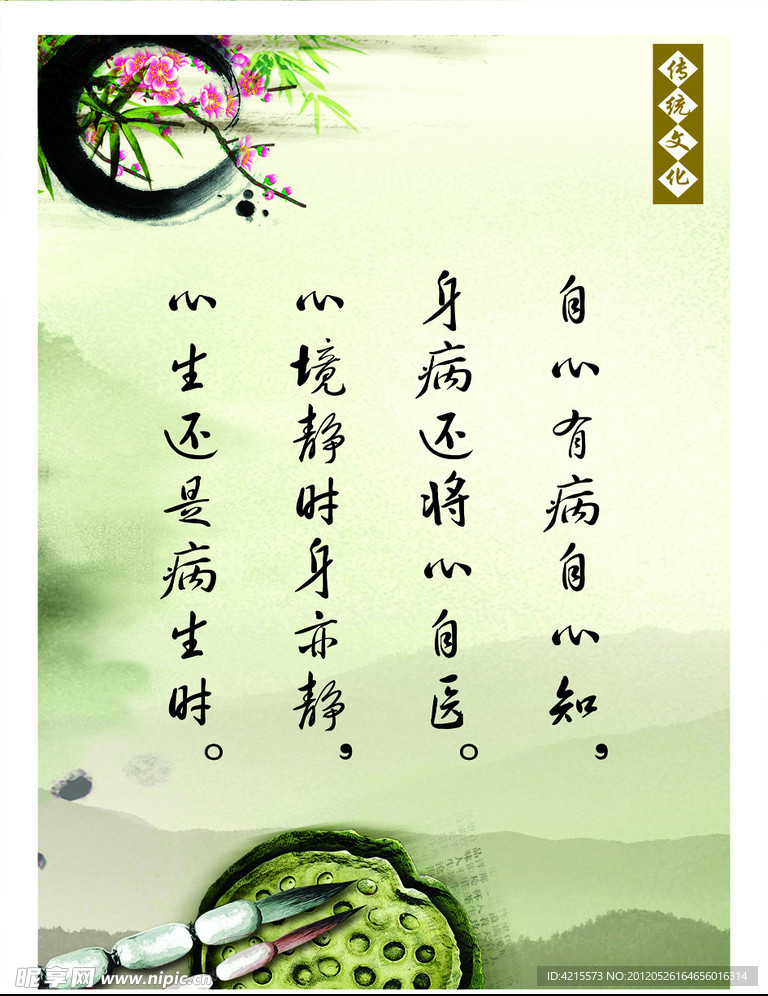 传统文化
自心有病自心知，
身病还将心自医。
心境静时身亦静，
心生还是病生时。
昵享网 www.nipic.cn
ID:4215573 NO:20120526164656016314